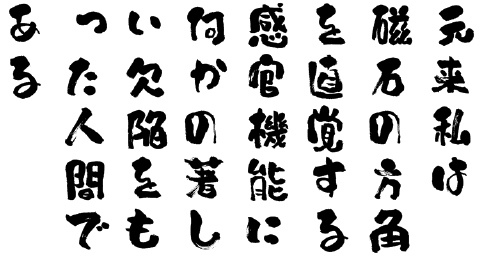 元来私は
磁石の方角
を直覚する
感官機能に
何かの著し
い欠陥をも
つた人間で
ある